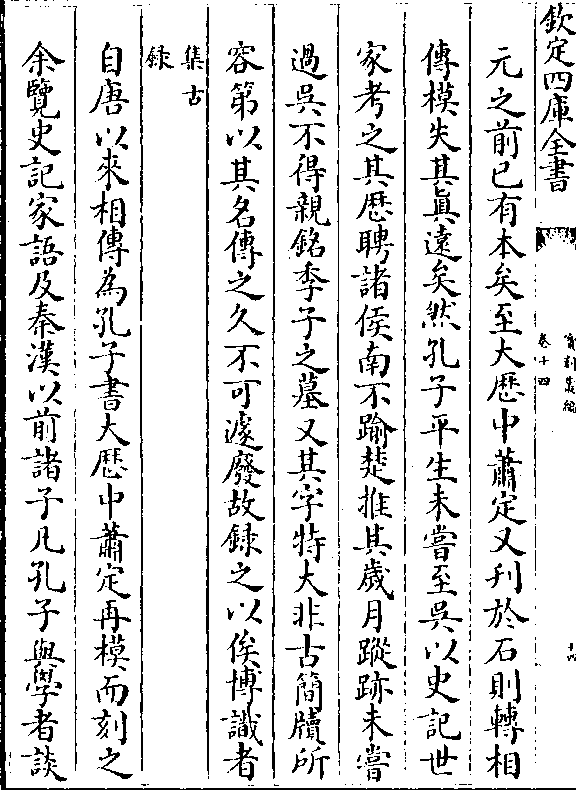 欽定四庫全書
寳刻叢編
卷十四
元之前已有本矣至大歴中蕭定又刋於石則轉相
傳模失其眞遠矣然孔子平生未嘗至吳以史記世
家考之其歴聘諸侯南不踰楚推其歲月蹤跡未嘗
過吳不得親銘季子之墓又其字特大非古簡牘所
容第以其名傳之久不可遽廢故録之以俟博識者
集古
録
自唐以來相傳為孔子書大歴中蕭定再模而刻之
余覽史記家語及秦漢以前諸子凡孔子與學者談